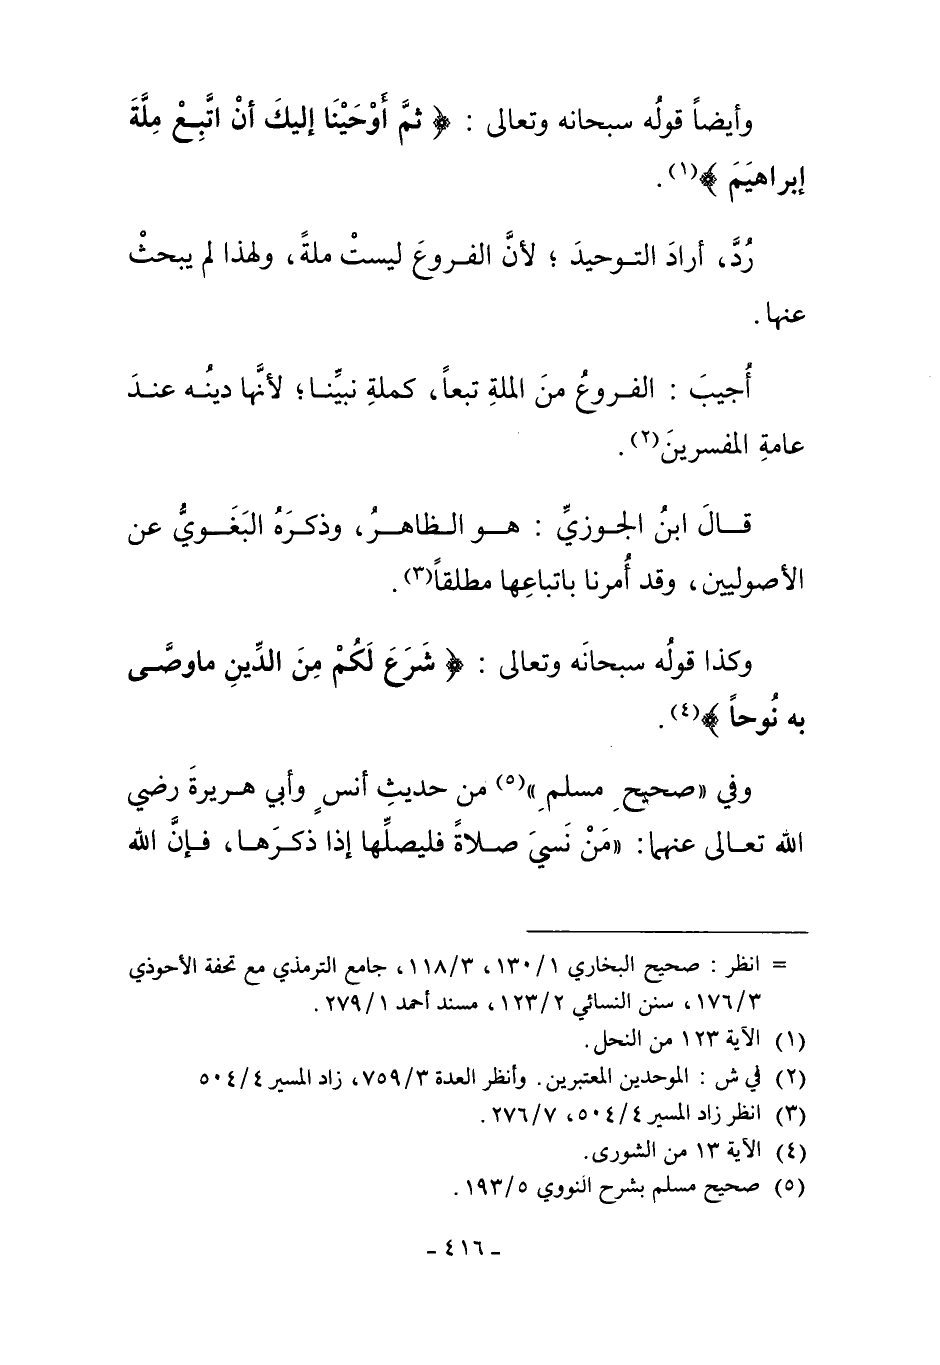 وأيضاً قولُه سبحانه وتعالى : ﴿ ثمَّ أَوْحَيْنَا إليكَ أنْ اتَّبِعْ مِلَّةَ
إبراهيَمَ ﴾(١) .
رُدَّ، أرادَ التوحيدَ ؛ لأنَّ الفروعَ ليستْ ملةً، ولهذا لم يبحثْ
عنها .
أُجيبَ : الفروعُ منَ الملةِ تبعاً، كملةِ نبيِّنا؛ لأنَّها دينُه عندَ
عامةِ المفسرينَ(٢) .
قالَ ابنُ الجوزيِّ : هو الظاهرُ، وذكرَهُ البَغَويُّ عن
الأصوليين، وقد أُمرنا باتباعِها مطلقاً(٣) .
وكذا قولُه سبحانَه وتعالى : ﴿ شَرَعَ لَكُمْ مِنَ الدِّينِ ماوصَّى
به نُوحاً ﴾(٤) .
وفي «صحيحِ مسلمٍ»(٥) من حديثِ أنسٍ وأبي هريرةَ رضي
الله تعالى عنهما: «مَنْ نَسيَ صلاةً فليصلِّها إذا ذكرَها، فإنَّ الله
= انظر : صحيح البخاري ١/١٣٠، ٣/١١٨، جامع الترمذي مع تحفة الأحوذي
٣/١٧٦، سنن النسائي ٢/١٢٣، مسند أحمد ١/٢٧٩ .
(١) الآية ١٢٣ من النحل .
(٢) في ش : الموحدين المعتبرين . وأنظر العدة ٣/٧٥٩، زاد المسير ٤/٥٠٤
(٣) انظر زاد المسير ٤/٥٠٤، ٧/٢٧٦ .
(٤) الآية ١٣ من الشورى .
(٥) صحيح مسلم بشرح النووي ٥/١٩٣ .
ـ ٤١٦ ـ